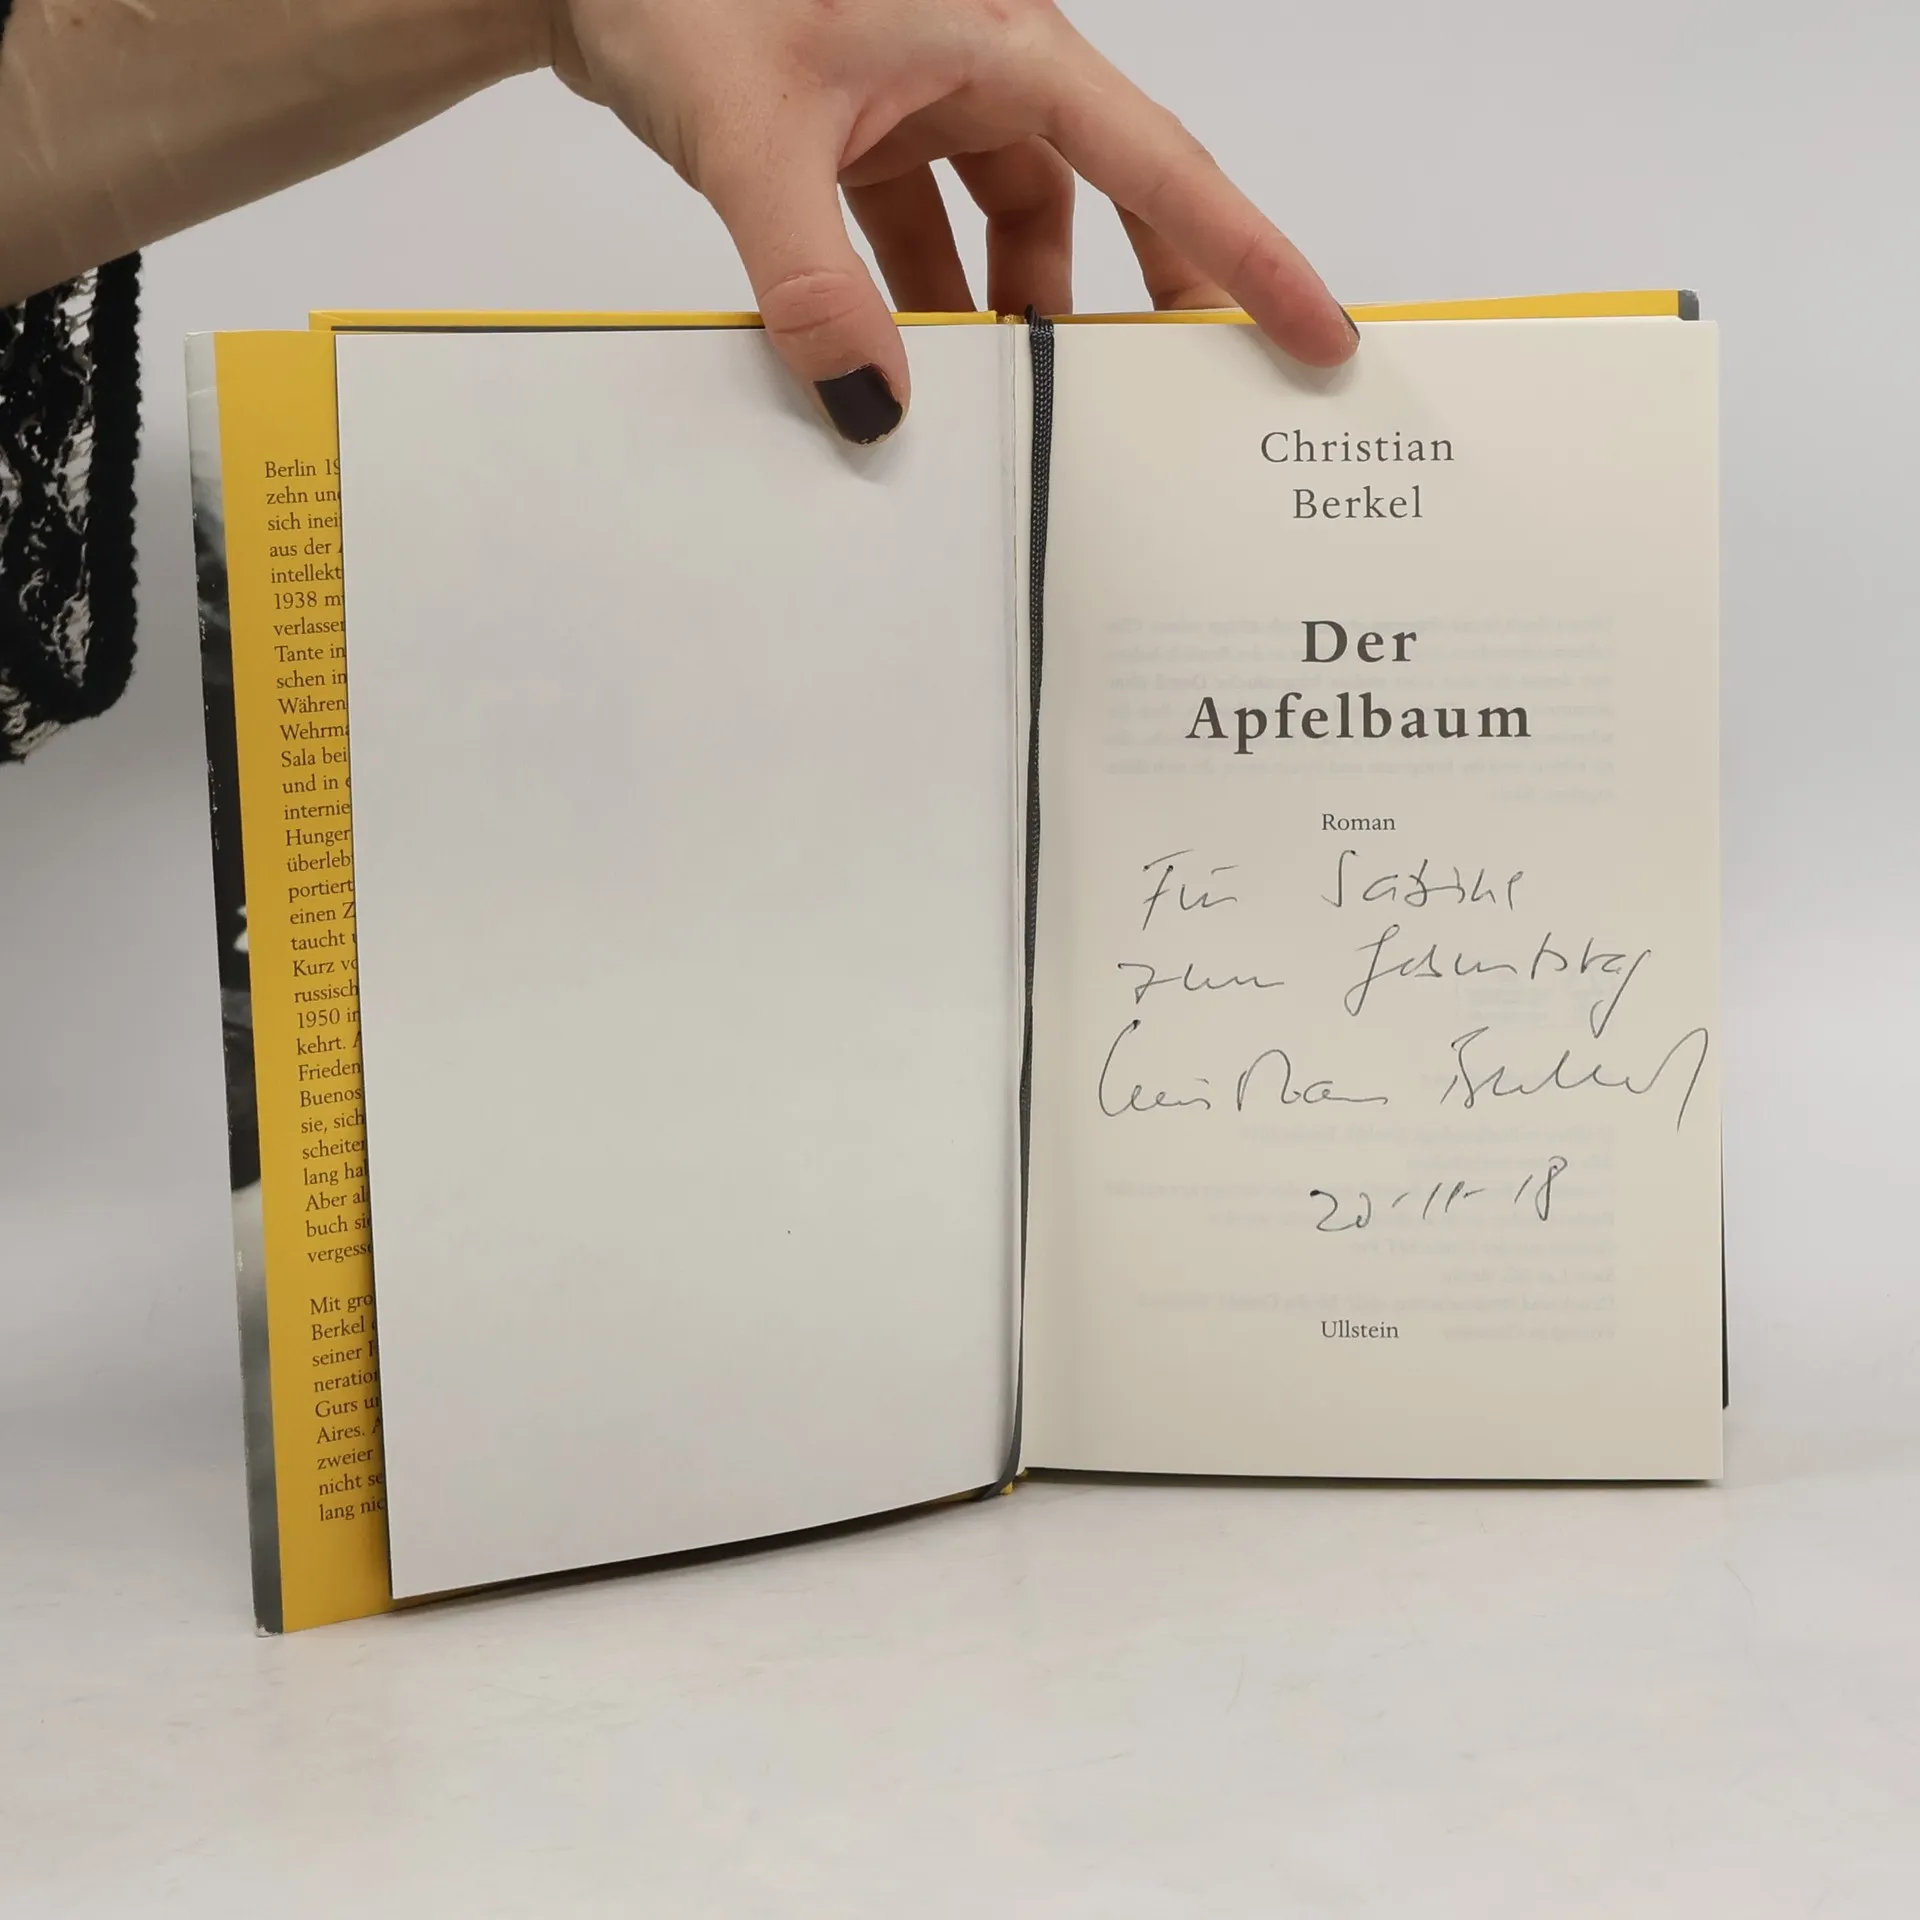 Berlin 19
zehn und
sich inei
aus der
intellekt
1938 m
verlassen
Tante in
schen in
Währen
Wehrma
Sala bei
und in
internie
Hunger
überleb
portiert
einen Z
taucht
Kurz vo
russisch
1950 in
kehrt. A
Frieden
Buenos
sie, sich
scheiter
lang hal
Aber al
buch si
vergesse
Mit gro
Berkel
seiner F
neration
Gurs u
Aires. A
zweier
nicht se
lang nic
Christian
Berkel
Der
Apfelbaum
Roman
Für Sabine
zum Geburtstag
Christian Berkel
20-11-18
Ullstein